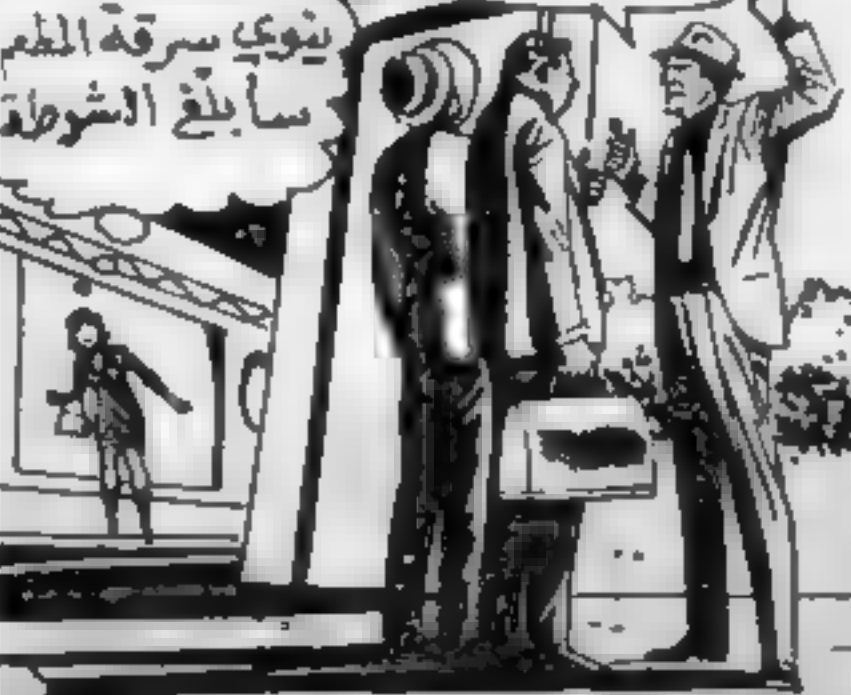 ينوي سرقة المطعم
سأبلغ الشرطة